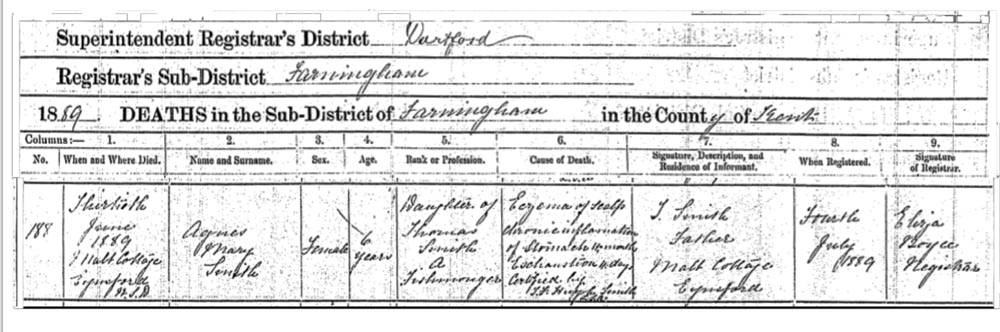 Superintendent Registrar's District Dartford
Registrar's Sub-District Farningham
1889. DEATHS in the Sub-District of Farningham in the County of Kent
Columns:— 1. 2. 3. 4. 5. 6. 7. 8. 9.
No. When and Where Died. Name and Surname. Sex. Age. Rank or Profession. Cause of Death. Signature, Description, and Residence of Informant. When Registered. Signature of Registrar.
188
Thirtieth
June
1889
Malt Cottage
Eynsford
R.S.D
Agnes
Mary
Smith
Female
6
years
Daughter of
Thomas
Smith
A
Fishmonger
Eczema of scalp
chronic inflamation
of stomach 4 months
Exhaustion 4 days
Certified by
Hugh Smith
T. Smith
Father
Malt Cottage
Eynsford
Fourth
July
1889
Eliza
Boyce
Registrar